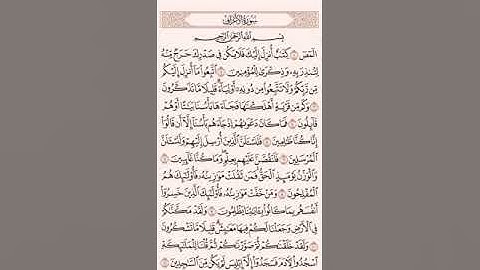 سُورَةُ الأَعْرَافِ
بِسْمِ اللَّهِ الرَّحْمَٰنِ الرَّحِيمِ
الٓمٓصٓ ١ كِتَٰبٌ أُنزِلَ إِلَيْكَ فَلَا يَكُن فِى صَدْرِكَ حَرَجٌ مِّنْهُ
لِتُنذِرَ بِهِۦ وَذِكْرَىٰ لِلْمُؤْمِنِينَ ٢ ٱتَّبِعُوا۟ مَآ أُنزِلَ إِلَيْكُم
مِّن رَّبِّكُمْ وَلَا تَتَّبِعُوا۟ مِن دُونِهِۦٓ أَوْلِيَآءَ ۗ قَلِيلًا مَّا تَذَكَّرُونَ
٣ وَكَم مِّن قَرْيَةٍ أَهْلَكْنَٰهَا فَجَآءَهَا بَأْسُنَا بَيَٰتًا أَوْ هُمْ
قَآئِلُونَ ٤ فَمَا كَانَ دَعْوَىٰهُمْ إِذْ جَآءَهُم بَأْسُنَآ إِلَّآ أَن قَالُوٓا۟
إِنَّا كُنَّا ظَٰلِمِينَ ٥ فَلَنَسْـَٔلَنَّ ٱلَّذِينَ أُرْسِلَ إِلَيْهِمْ وَلَنَسْـَٔلَنَّ
ٱلْمُرْسَلِينَ ٦ فَلَنَقُصَّنَّ عَلَيْهِم بِعِلْمٍ ۖ وَمَا كُنَّا غَآئِبِينَ ٧
وَٱلْوَزْنُ يَوْمَئِذٍ ٱلْحَقُّ ۚ فَمَن ثَقُلَتْ مَوَٰزِينُهُۥ فَأُو۟لَٰٓئِكَ هُمُ
ٱلْمُفْلِحُونَ ٨ وَمَنْ خَفَّتْ مَوَٰزِينُهُۥ فَأُو۟لَٰٓئِكَ ٱلَّذِينَ خَسِرُوٓا۟
أَنفُسَهُم بِمَا كَانُوا۟ بِـَٔايَٰتِنَا يَظْلِمُونَ ٩ وَلَقَدْ مَكَّنَّٰكُمْ
فِى ٱلْأَرْضِ وَجَعَلْنَا لَكُمْ فِيهَا مَعَٰيِشَ ۗ قَلِيلًا مَّا تَشْكُرُونَ
١٠ وَلَقَدْ خَلَقْنَٰكُمْ ثُمَّ صَوَّرْنَٰكُمْ ثُمَّ قُلْنَا لِلْمَلَٰٓئِكَةِ
ٱسْجُدُوا۟ لِءَادَمَ فَسَجَدُوٓا۟ إِلَّآ إِبْلِيسَ لَمْ يَكُن مِّنَ ٱلسَّٰجِدِينَ ١١